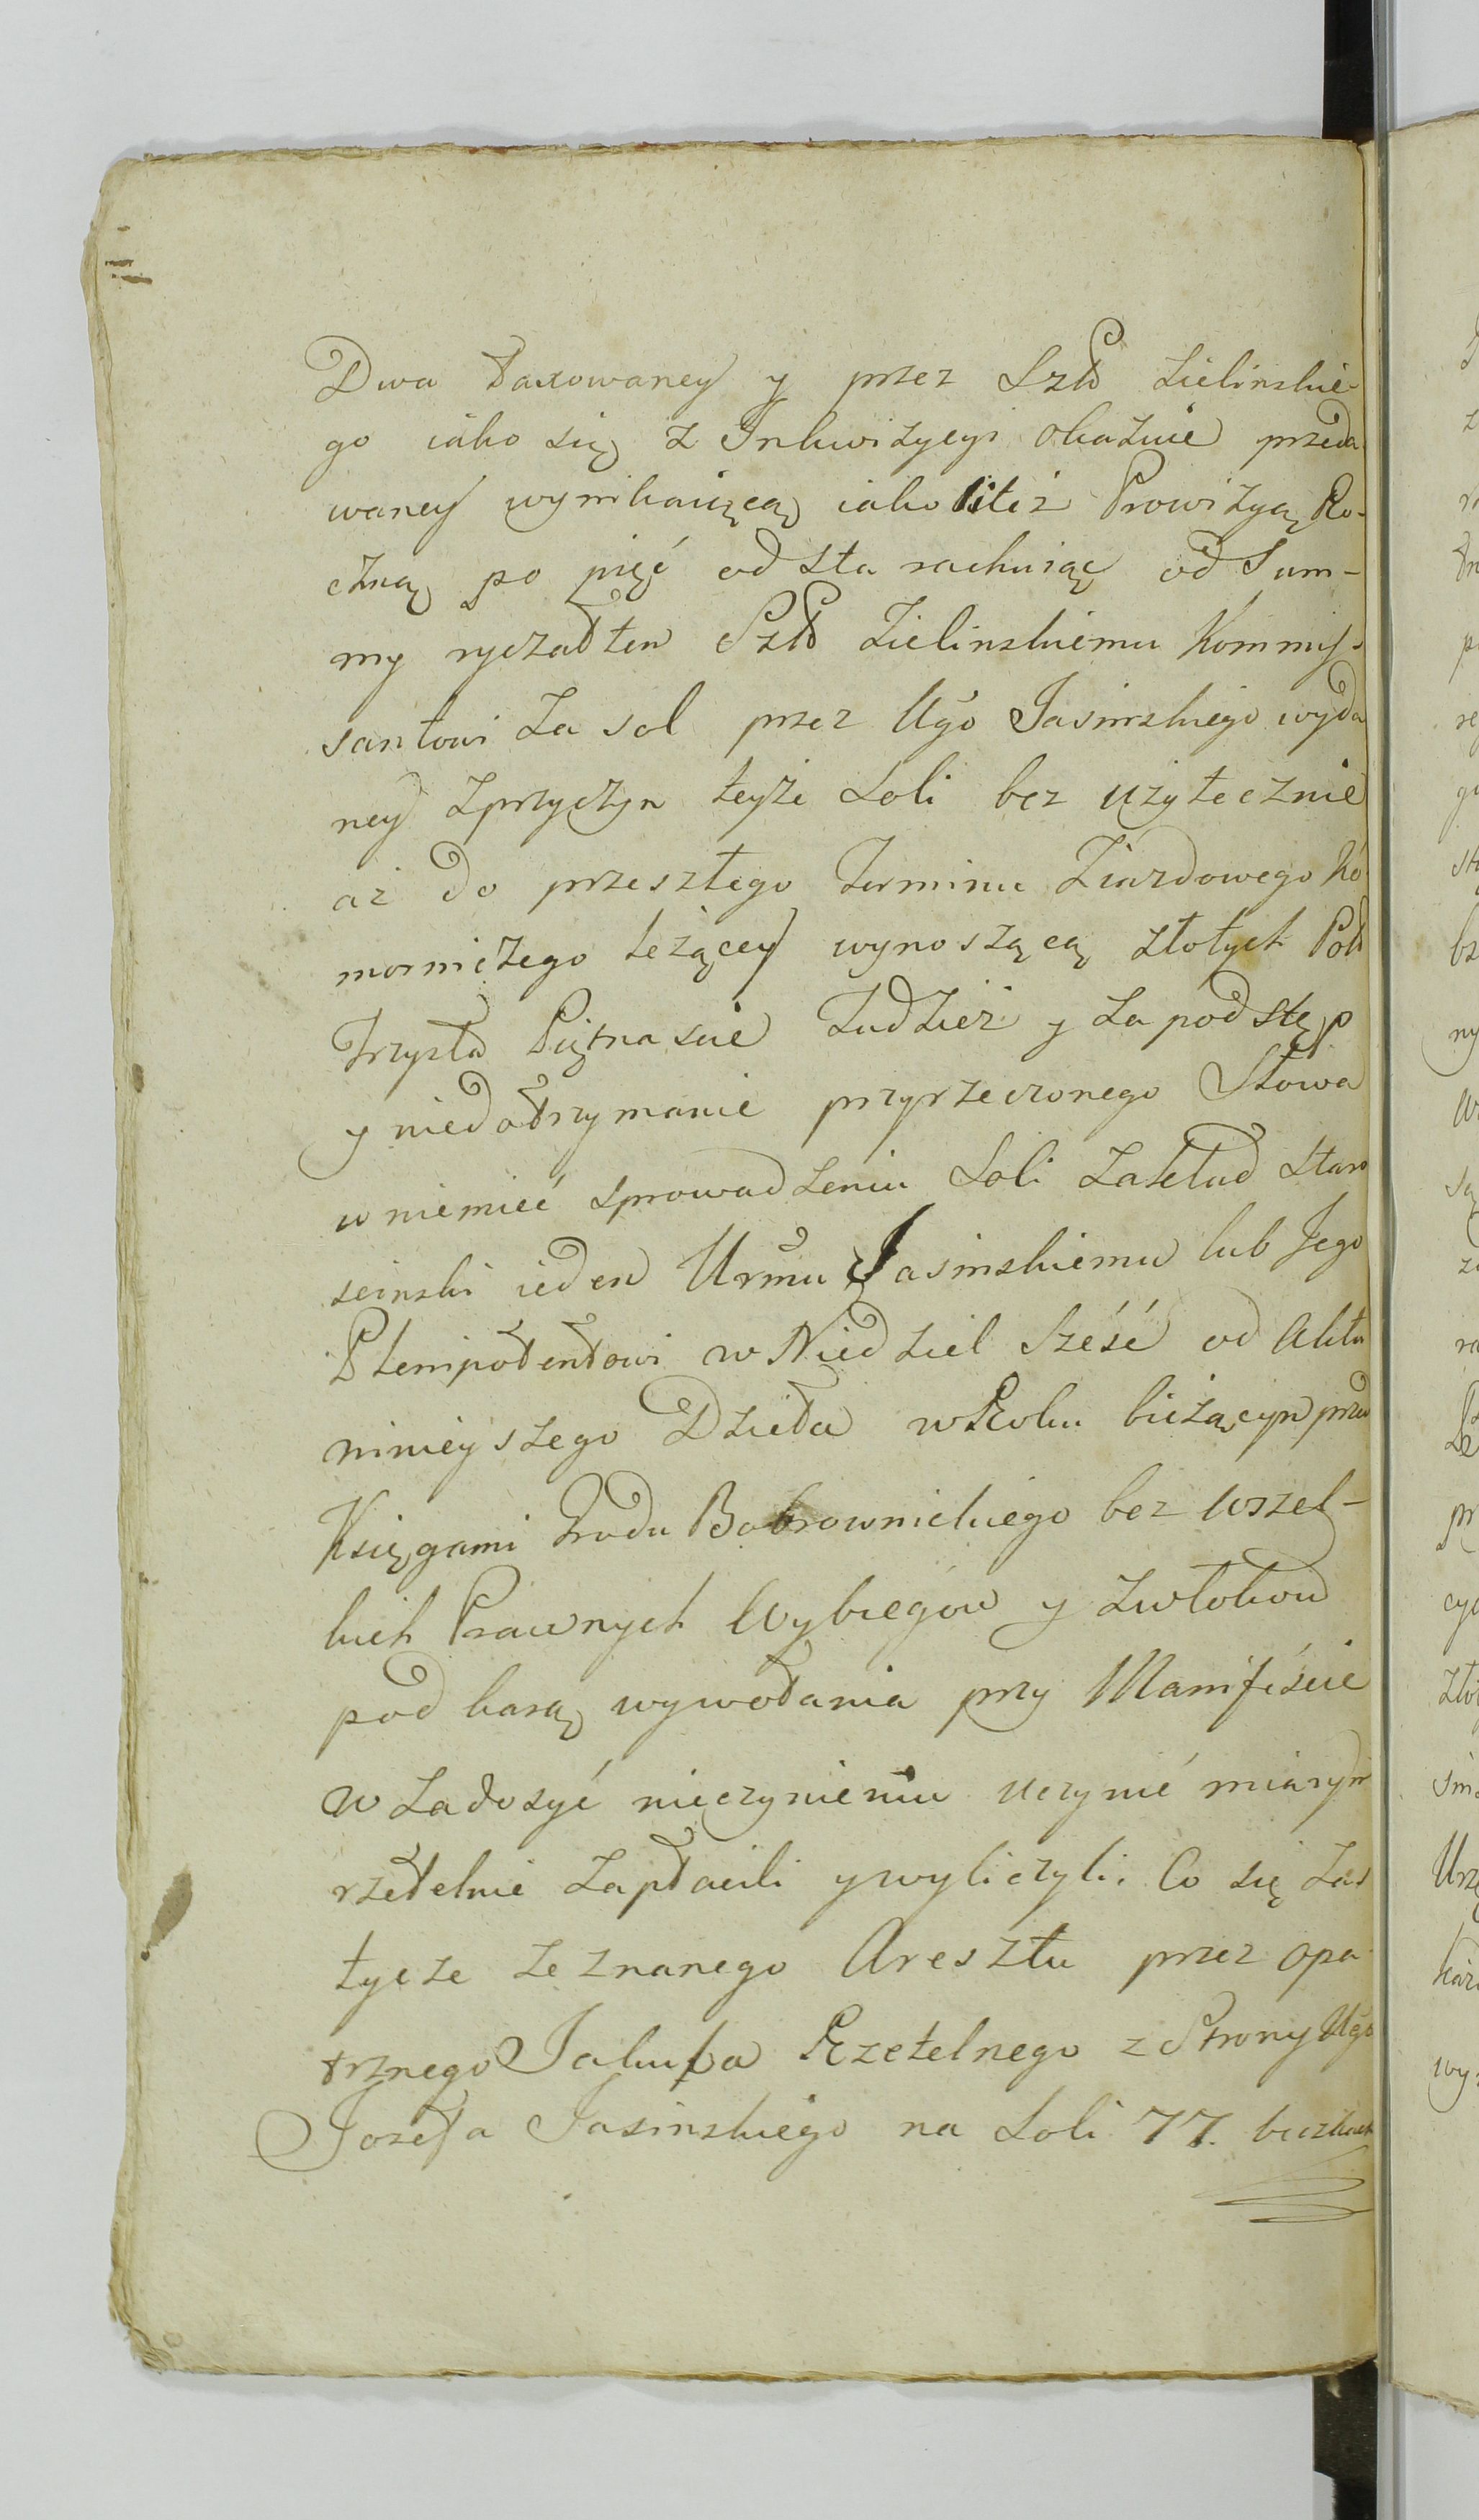 Dwa taxowaney y przez Szło Zielinskie-
go iako się z Inkwizycyi okazuie przeda-
waney wynikaiącą iako też Prowizyą Ro-
czną po pięć od sta rachuiąc od Sum-
my ryczałtem Szło Zielinskiemu Kommis-
santowi za sol przez Ugo Jasinskiego wyda
ney z przyczyn teyże Soli bez użytecznie
aż do przeszłego Terminu Ziazdowego Ko
morniczego leżącey wynoszącą złotych Pol
Trzysta Piętnascie Tudzież y za podstęp
y niedotrzymanie przyrzeczonego Słowa
w niemieć sprowadzeniu Soli Zakład Staro
scinski ieden Urmu Jasinskiemu lub Jego
Plenipotentowi w Niedziel Sześć od Aktu
ninieyszego Dzieła w Roku bieżącym przed
Księgami Grodu Bobrownickiego bez wszel-
kich Prawnych Wybiegow y zwłokow
pod karą wywołania przy Manifescie
w Zadosyć nieczynieniu uczynić miasym
rzetelnie zapłacili y wyliczyli. Co się zas
tycze zeznanego Aresztu przez opa-
trznego Jakuba Rzetelnego z Strony Ugo
Jozefa Jasinskiego na Soli 77. beczkach